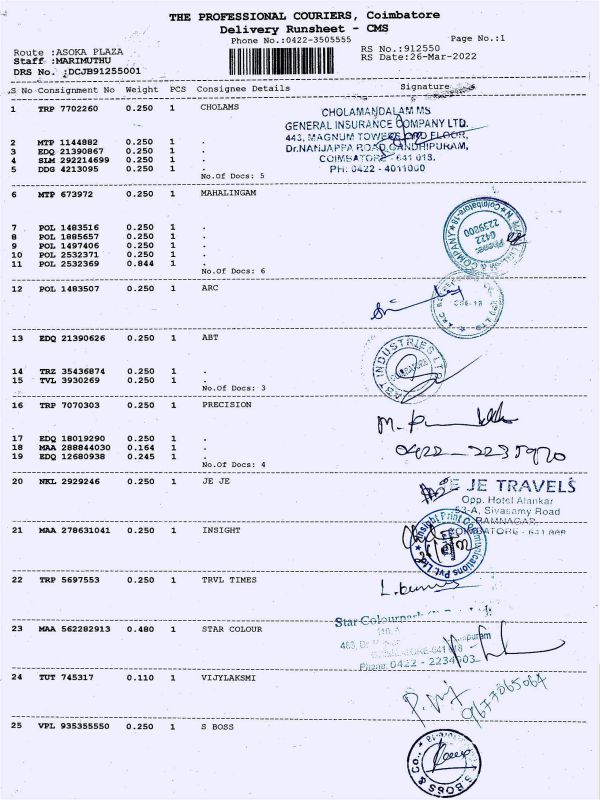 THE PROFESSIONAL COURIERS, Coimbatore
Delivery Runsheet - CMS
Phone No.:0422-3505555
Page No.:1
Route :ASOKA PLAZA
RS No.:912550
Staff :MARIMUTHU
RS Date:26-Mar-2022
DRS No. :DCJB91255001
S No Consignment No Weight PCS Consignee Details Signature
1 TRP 7702260 0.250 1 CHOLAMS
CHOLAMANDALAM MS
GENERAL INSURANCE COMPANY LTD.
443, MAGNUM TOWERS FLOOR,
Dr.NANJAPPA ROAD, GANDHIPURAM,
COIMBATORE - 641 018.
PH: 0422 - 4011000
2 MTP 1144882 0.250 1 .
3 EDQ 21390867 0.250 1 .
4 SLM 292214699 0.250 1 .
5 DDG 4213095 0.250 1 .
No.Of Docs: 5
6 MTP 673972 0.250 1 MAHALINGAM
7 POL 1483516 0.250 1 .
8 POL 1885657 0.250 1 .
9 POL 1497406 0.250 1 .
10 POL 2532371 0.250 1 .
11 POL 2532369 0.844 1 .
No.Of Docs: 6
& COMPANY Coimbatore-18
Phone:
0422
2239200
12 POL 1483507 0.250 1 ARC
13 EDQ 21390626 0.250 1 ABT
ABT INDUSTRIES LTD
14 TRZ 35436874 0.250 1 .
15 TVL 3930269 0.250 1 .
No.Of Docs: 3
16 TRP 7070303 0.250 1 PRECISION
17 EDQ 18019290 0.250 1 .
18 MAA 288844030 0.164 1 .
19 EDQ 12680938 0.245 1 .
No.Of Docs: 4
0422-2235970
20 NKL 2929246 0.250 1 JE JE
JE TRAVELS
Opp. Hotel Alankar
53-A, Sivasamy Road
RAMNAGAR,
COIMBATORE - 641 009
21 MAA 278631041 0.250 1 INSIGHT
Insight Print Communications Pvt. Ltd.
22 TRP 5697553 0.250 1 TRVL TIMES
23 MAA 562282913 0.480 1 STAR COLOUR
Star Colourpark
COIMBATORE-641
Phone: 0422 - 2234303
24 TUT 745317 0.110 1 VIJYLAKSMI
9677865064
25 VPL 935355550 0.250 1 S BOSS
S BOSS & Co.,